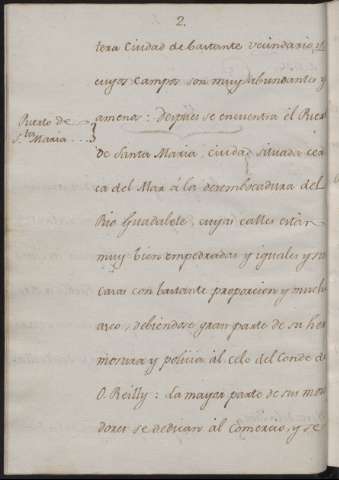 2.
tera Ciudad de bastante vecindario, y
cuyos campos son muy abundantes y
amenos: Despues se encuentra el Puerto
Puerto de
Sta. Maria...
de Santa Maria, ciudad situada cer
ca del Mar á la desembocadura del
Rio Guadalete, cuyas calles están
muy bien empedradas y iguales y sus
casas con bastante proporcion y mucho
aseo, debiendose gran parte de su her
mosura y policia al celo del Conde de
O Reilly: la mayor parte de sus mora
dores se dedican al Comercio, y se